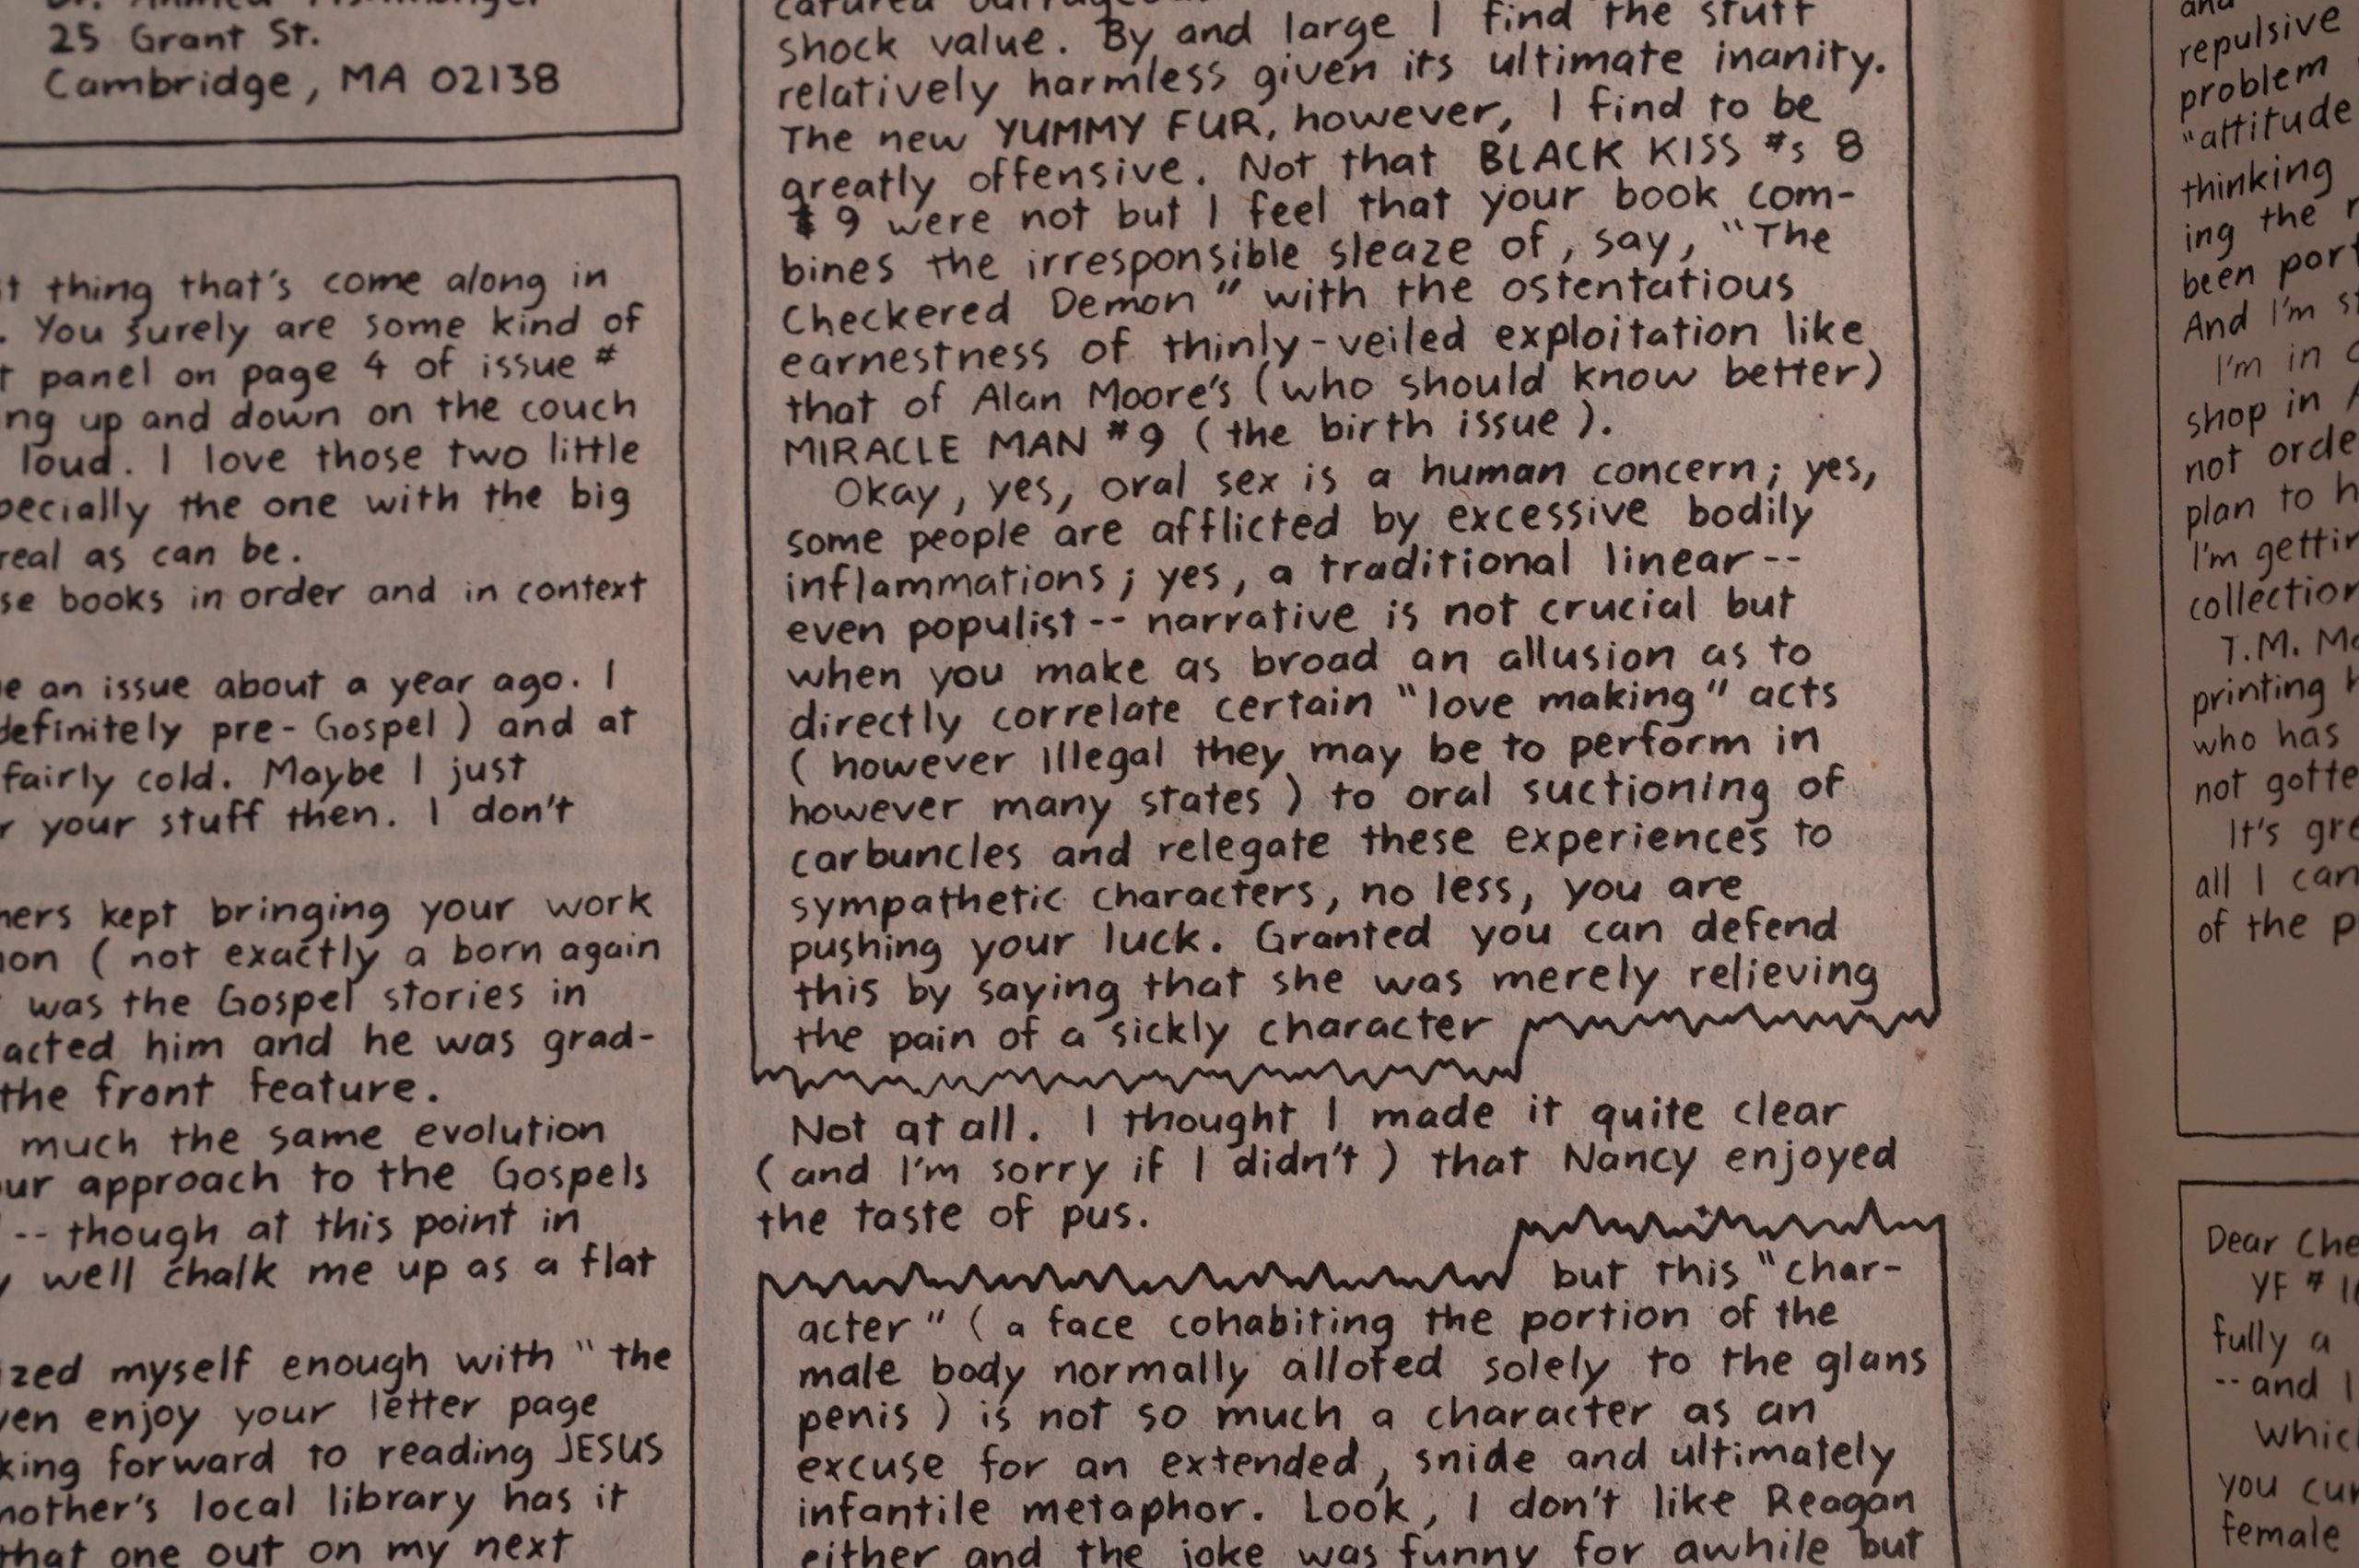 25 Grant St.
Cambridge, MA 02138
t thing that's come along in
. You surely are some kind of
panel on page 4 of issue #
ng up and down on the couch
loud. I love those two little
pecially the one with the big
real as can be.
se books in order and in context
e an issue about a year ago. I
definitely pre-Gospel) and at
fairly cold. Maybe I just
r your stuff then. I don't
ners kept bringing your work
ion (not exactly a born again
was the Gospel stories in
acted him and he was grad-
the front feature.
much the same evolution
our approach to the Gospels
-- though at this point in
y well chalk me up as a flat
ized myself enough with "the
ven enjoy your letter page
king forward to reading JESUS
mother's local library has it
that one out on my next
find the stuff
shock value. By and large I
relatively harmless given its ultimate inanity.
The new YUMMY FUR, however, I find to be
greatly offensive. Not that BLACK KISS #s 8
& 9 were not but I feel that your book com-
bines the irresponsible sleaze of, say, "The
Checkered Demon" with the ostentatious
earnestness of thinly-veiled exploitation like
that of Alan Moore's (who should know better)
MIRACLE MAN #9 (the birth issue).
Okay, yes, oral sex is a human concern; yes,
some people are afflicted by excessive bodily
inflammations; yes, a traditional linear--
even populist-- narrative is not crucial but
when you make as broad an allusion as to
directly correlate certain "love making" acts
(however illegal they may be to perform in
however many states) to oral suctioning of
carbuncles and relegate these experiences to
sympathetic characters, no less, you are
pushing your luck. Granted you can defend
this by saying that she was merely relieving
the pain of a sickly character
Not at all. I thought I made it quite clear
(and I'm sorry if I didn't) that Nancy enjoyed
the taste of pus.
but this "char-
acter" (a face cohabiting the portion of the
male body normally alloted solely to the glans
penis) is not so much a character as an
excuse for an extended, snide and ultimately
infantile metaphor. Look, I don't like Reagan
either and the joke was funny for awhile but
and
repulsive
problem
"attitude
thinking
ing the r
been port
And I'm st
I'm in
shop in A
not orde
plan to h
I'm gettin
collection
T.M. Ma
printing h
who has
not gotte
It's gre
all I can
of the p
Dear Che
YF #1
fully a
--and I
Which
you cur
female